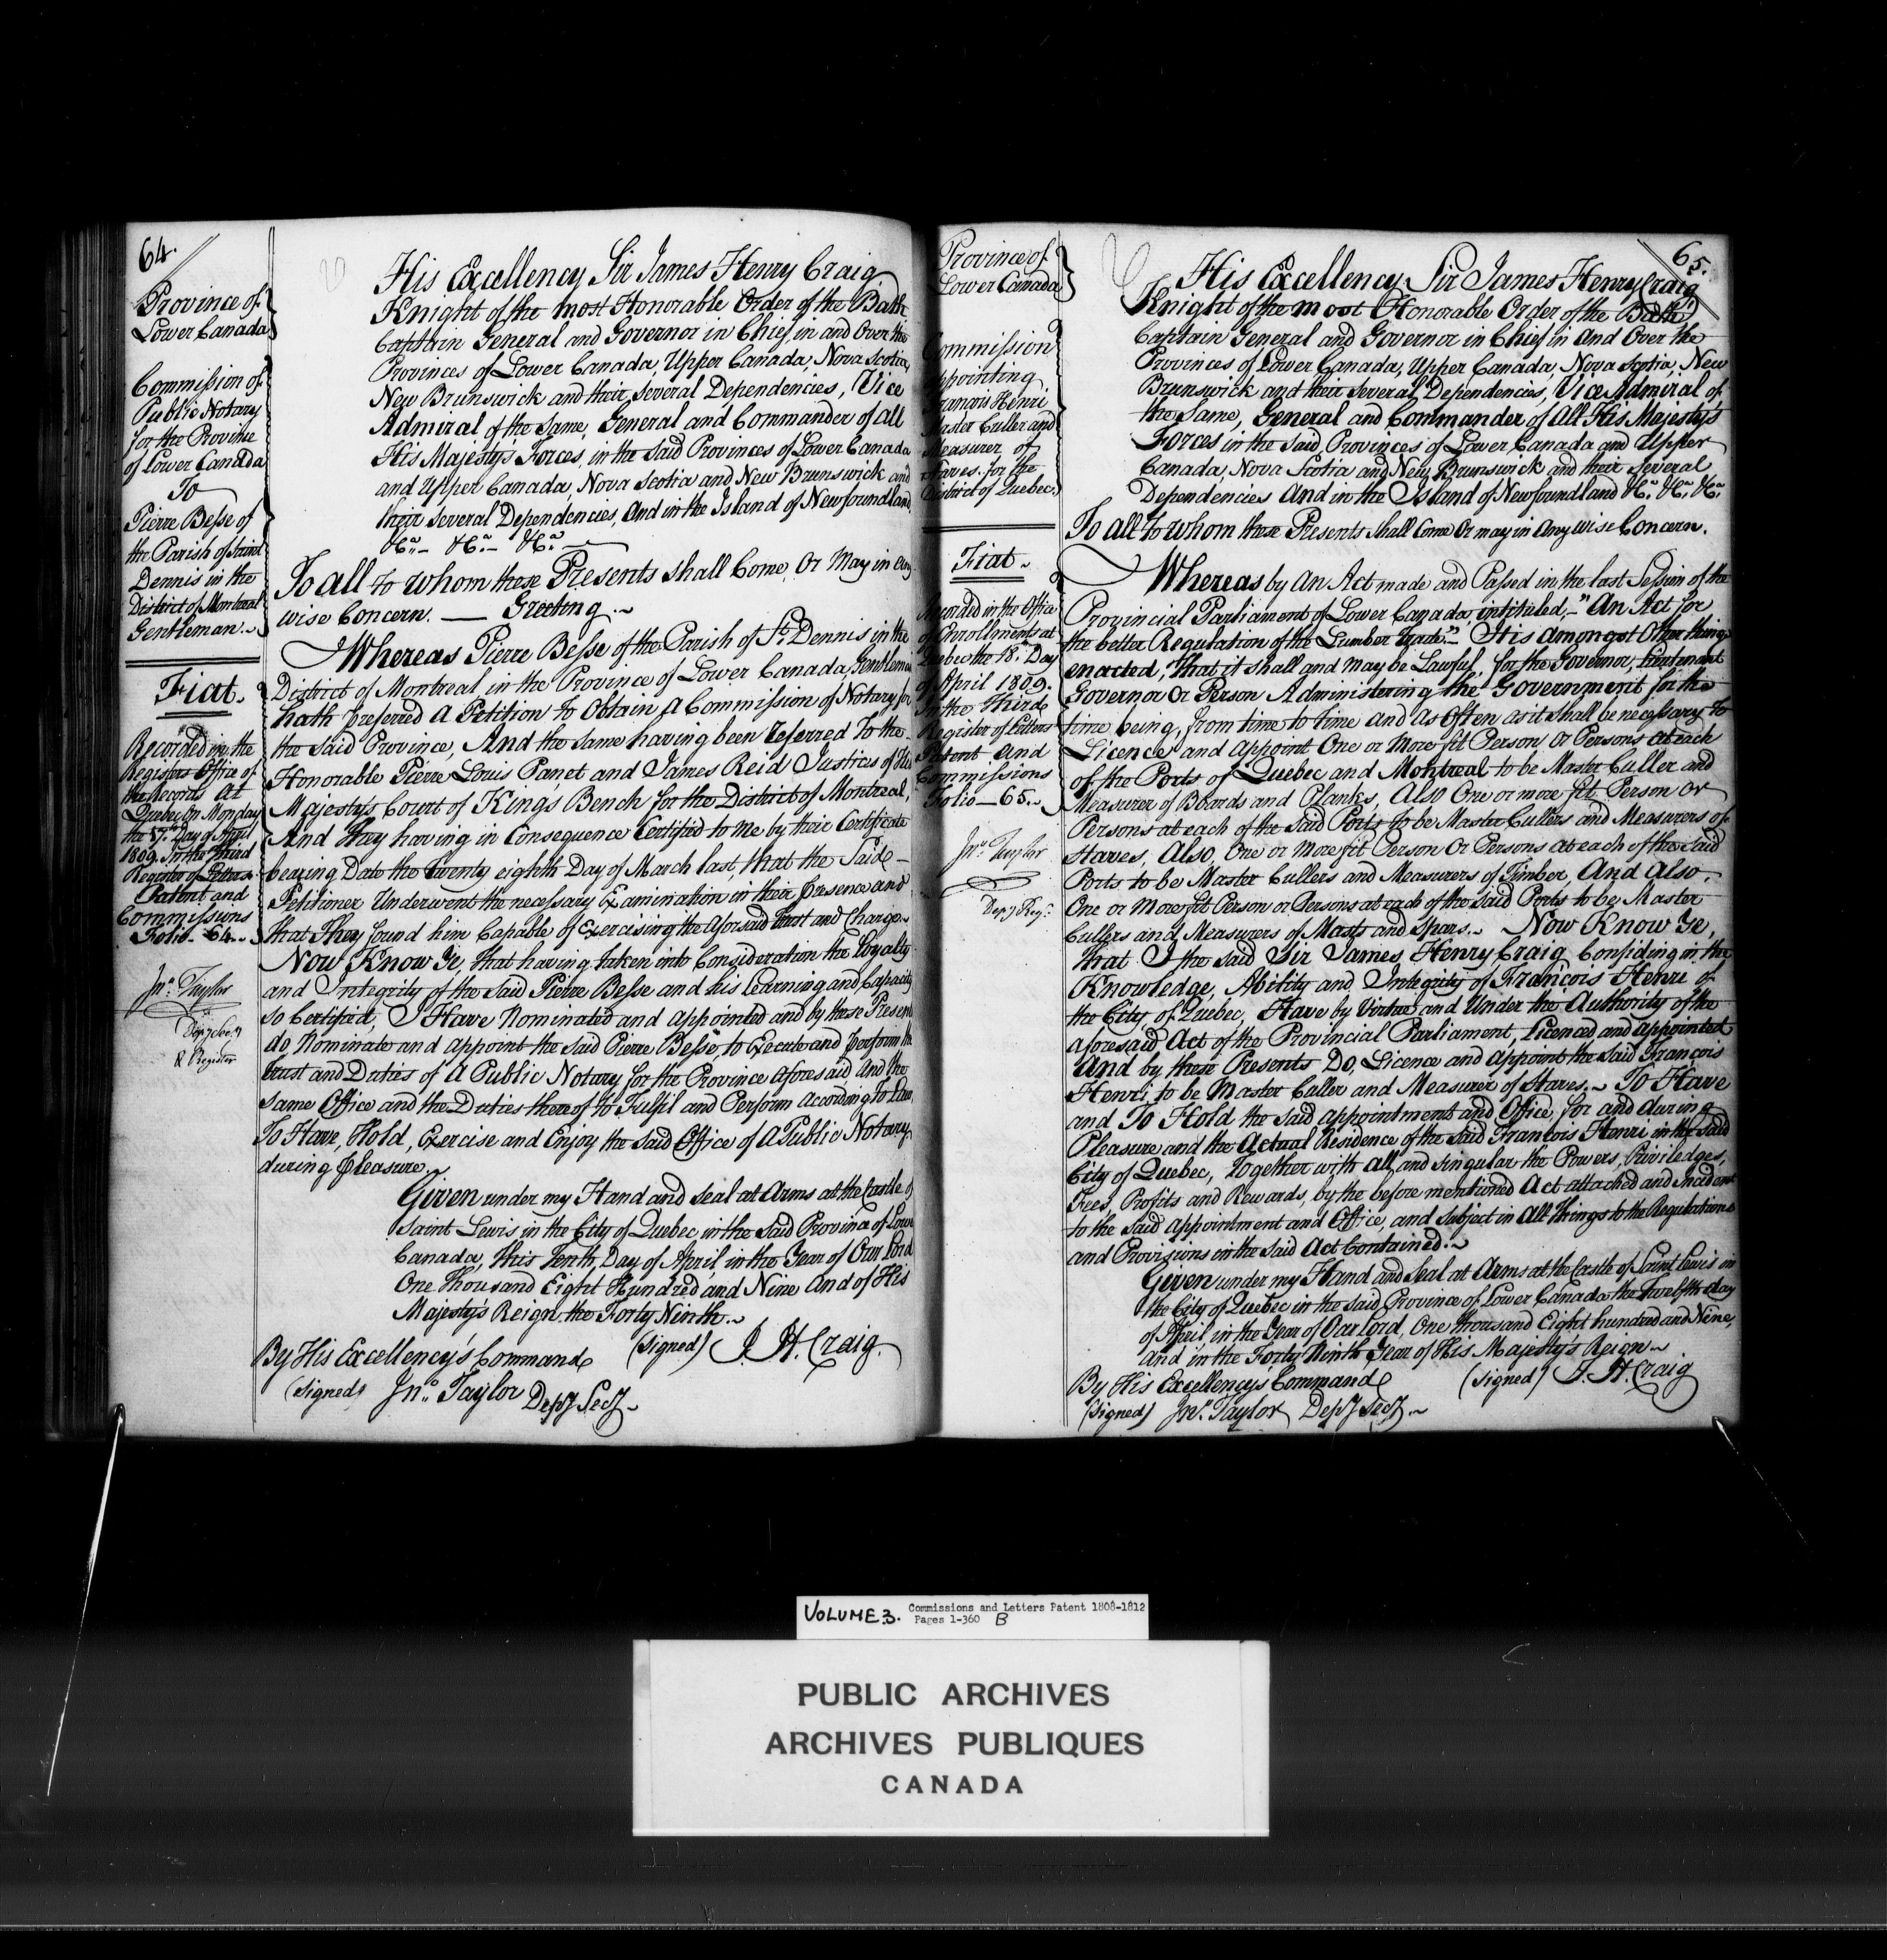 64.
Province of
Lower Canada
Commission of
Public Notary
for the Province
of Lower Canada
To
Pierre Besse of
the Parish of Saint
Dennis in the
District of Montreal
Gentleman.~
Fiat.
Recorded in the
Registers Office of
the Records at
Quebec on Monday
the 17th Day of April
1809. In the third
Register of Letters
Patent and
Commissions
Folio - 64.~
Jno. Taylor
Depy Secy
& Register
His Excellency Sir James Henry Craig
Knight of the most Honorable Order of the Bath
Captain General and Governor in Chief, in and Over the
Provinces of Lower Canada, Upper Canada, Nova Scotia,
New Brunswick and their several Dependencies, Vice
Admiral of the Same, General and Commander of all
His Majesty's Forces, in the said Provinces of Lower Canada
and Upper Canada, Nova Scotia and New Brunswick and
their several Dependencies, And in the Island of Newfoundland,
&ca. - &ca. - &ca. —
To all to whom these Presents shall Come, Or May in any
wise Concern. — Greeting.~
Whereas Pierre Besse of the Parish of St. Dennis in the
District of Montreal, in the Province of Lower Canada, Gentleman
hath preferred a Petition to Obtain a Commission of Notary for
the said Province, And the same having been referred To the
Honorable Pierre Louis Panet and James Reid Justices of His
Majesty's Court of King's Bench for the District of Montreal,
And they having in Consequence Certified to me by their Certificate
bearing Date the twenty eighth Day of March last, that the Said -
Petitioner Underwent the necessary Examination in their presence and
that They found him Capable of Exercising the aforsaid trust and Charge.~
Now Know Ye, that having taken into Consideration the Loyalty
and Integrity of the Said Pierre Besse and his Learning and Capacity
so Certified, I Have Nominated and appointed and by these Presents
do Nominate and appoint the said Pierre Besse, to Execute and perform the
trust and Duties of A Public Notary for the Province aforesaid, And the
same Office and the Duties thereof to Fulfil and Perform according To Law.
To Have, Hold, Exercise and Enjoy the Said Office of A Public Notary,
during pleasure.
Given under my Hand and seal at Arms at the Castle of
Saint Lewis in the City of Quebec, in the said Province of Lower
Canada, this Tenth Day of April, in the Year of Our Lord
One thousand Eight Hundred, and Nine and of His
Majesty's Reign the Forty Ninth.~
(signed) J. H. Craig.
By His Excellency's Command
(signed) Jno. Taylor Depy Secy.~
65.
Province of
Lower Canada
Commission
appointing
Francois Henri
Master Culler and
Measurer of
Staves. for the
District of Quebec.
Fiat.~
Recorded in the Office
of Enrollments at
Quebec the 18th Day
of April 1809.
In the Third
Register of Letters
Patent and
Commissions
Folio — 65.~
Jno. Taylor
Depy Regr.
His Excellency Sir James Henry Craig
Knight of the most Honorable Order of the Bath
Captain General and Governor in Chief in And Over the
Provinces of Lower Canada, Upper Canada, Nova Scotia, New
Brunswick and their several Dependencies, Vice Admiral of
the Same, General and Commander of All His Majesty's
Forces in the said Provinces of Lower Canada and Upper
Canada, Nova Scotia and New Brunswick and their several
Dependencies And in the Island of Newfoundland &ca. &ca. &ca.
To all to whom these Presents shall Come Or may in Any wise Concern.
Whereas by An Act made and Passed in the last Session of the
Provincial Parliament of Lower Canada, intituled, - "An Act for
the better Regulation of the Lumber Trade." It is amongst Other things
enacted, That it shall and may be Lawful, for the Governor, Lieutenant
Governor Or Person Administering the Government for the
time being, from time to time and as Often as it shall be necessary To
Licence and appoint One or More fit Person Or Persons at each
of the Ports of Quebec and Montreal to be Master Culler and
Measurer of Boards and Planks, Also One or more fit Person or
Persons at each of the said Ports to be Master Cullers and Measurers of
Staves, Also, One or More fit Person Or Persons at each of the said
Ports to be Master Cullers and Measurers of Timber, And Also,
One or More fit Person or Persons at each of the said Ports to be Master
Cullers and Measurers of Masts and Spars.~ Now Know Ye,
that I the said Sir James Henry Craig Confiding in the
Knowledge, Ability and Integrity of Francois Henri of
the City of Quebec, Have by Virtue and Under the Authority of the
aforesaid Act of the Provincial Parliament, licenced and appointed
And by these Presents Do, Licence and appoint the said Francois
Henri, to be Master Culler and Measurer of Staves.~ To Have
and To Hold the said appointment and Office for and during
Pleasure and the Actual Residence of the said Francois Henri in the said
City of Quebec, together with all and singular the Powers, Priviledges,
Fees, Profits and Rewards, by the before mentioned Act attached and Incident
to the said appointment and Office, and subject in All things to the Regulations
and Provisions in the said Act Contained.~
Given under my Hand and Seal at Arms at the Castle of Saint Lewis in
the City of Quebec in the said Province of Lower Canada the Twelfth day
of April in the Year of Our Lord, One thousand Eight hundred and Nine,
And in the Forty Ninth Year of His Majesty's Reign~
By His Excellency's Command (signed) J. H. Craig
(signed) Jno. Taylor Depy Secy.~
VOLUME 3. Commissions and Letters Patent 1808-1812
Pages 1-360 B
PUBLIC ARCHIVES
ARCHIVES PUBLIQUES
CANADA